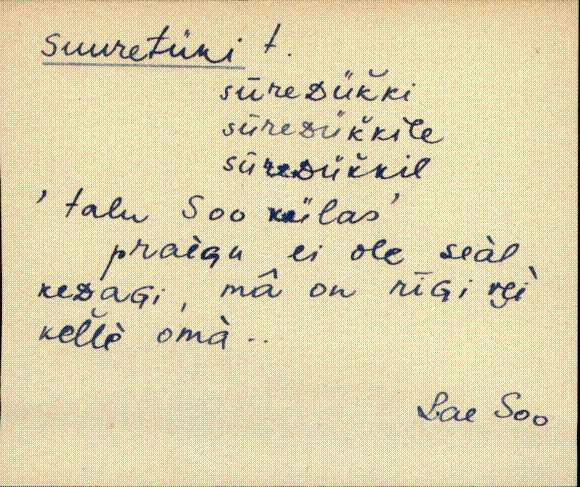 Suuretüki t.
sūreDüк̆ki
sūreDüк̆kile
sūreDüк̆kil
' talu Soo külas'
praègu ei ole seàl
keDagi, mâ on rīgi
kellè omà..
Lae Soo